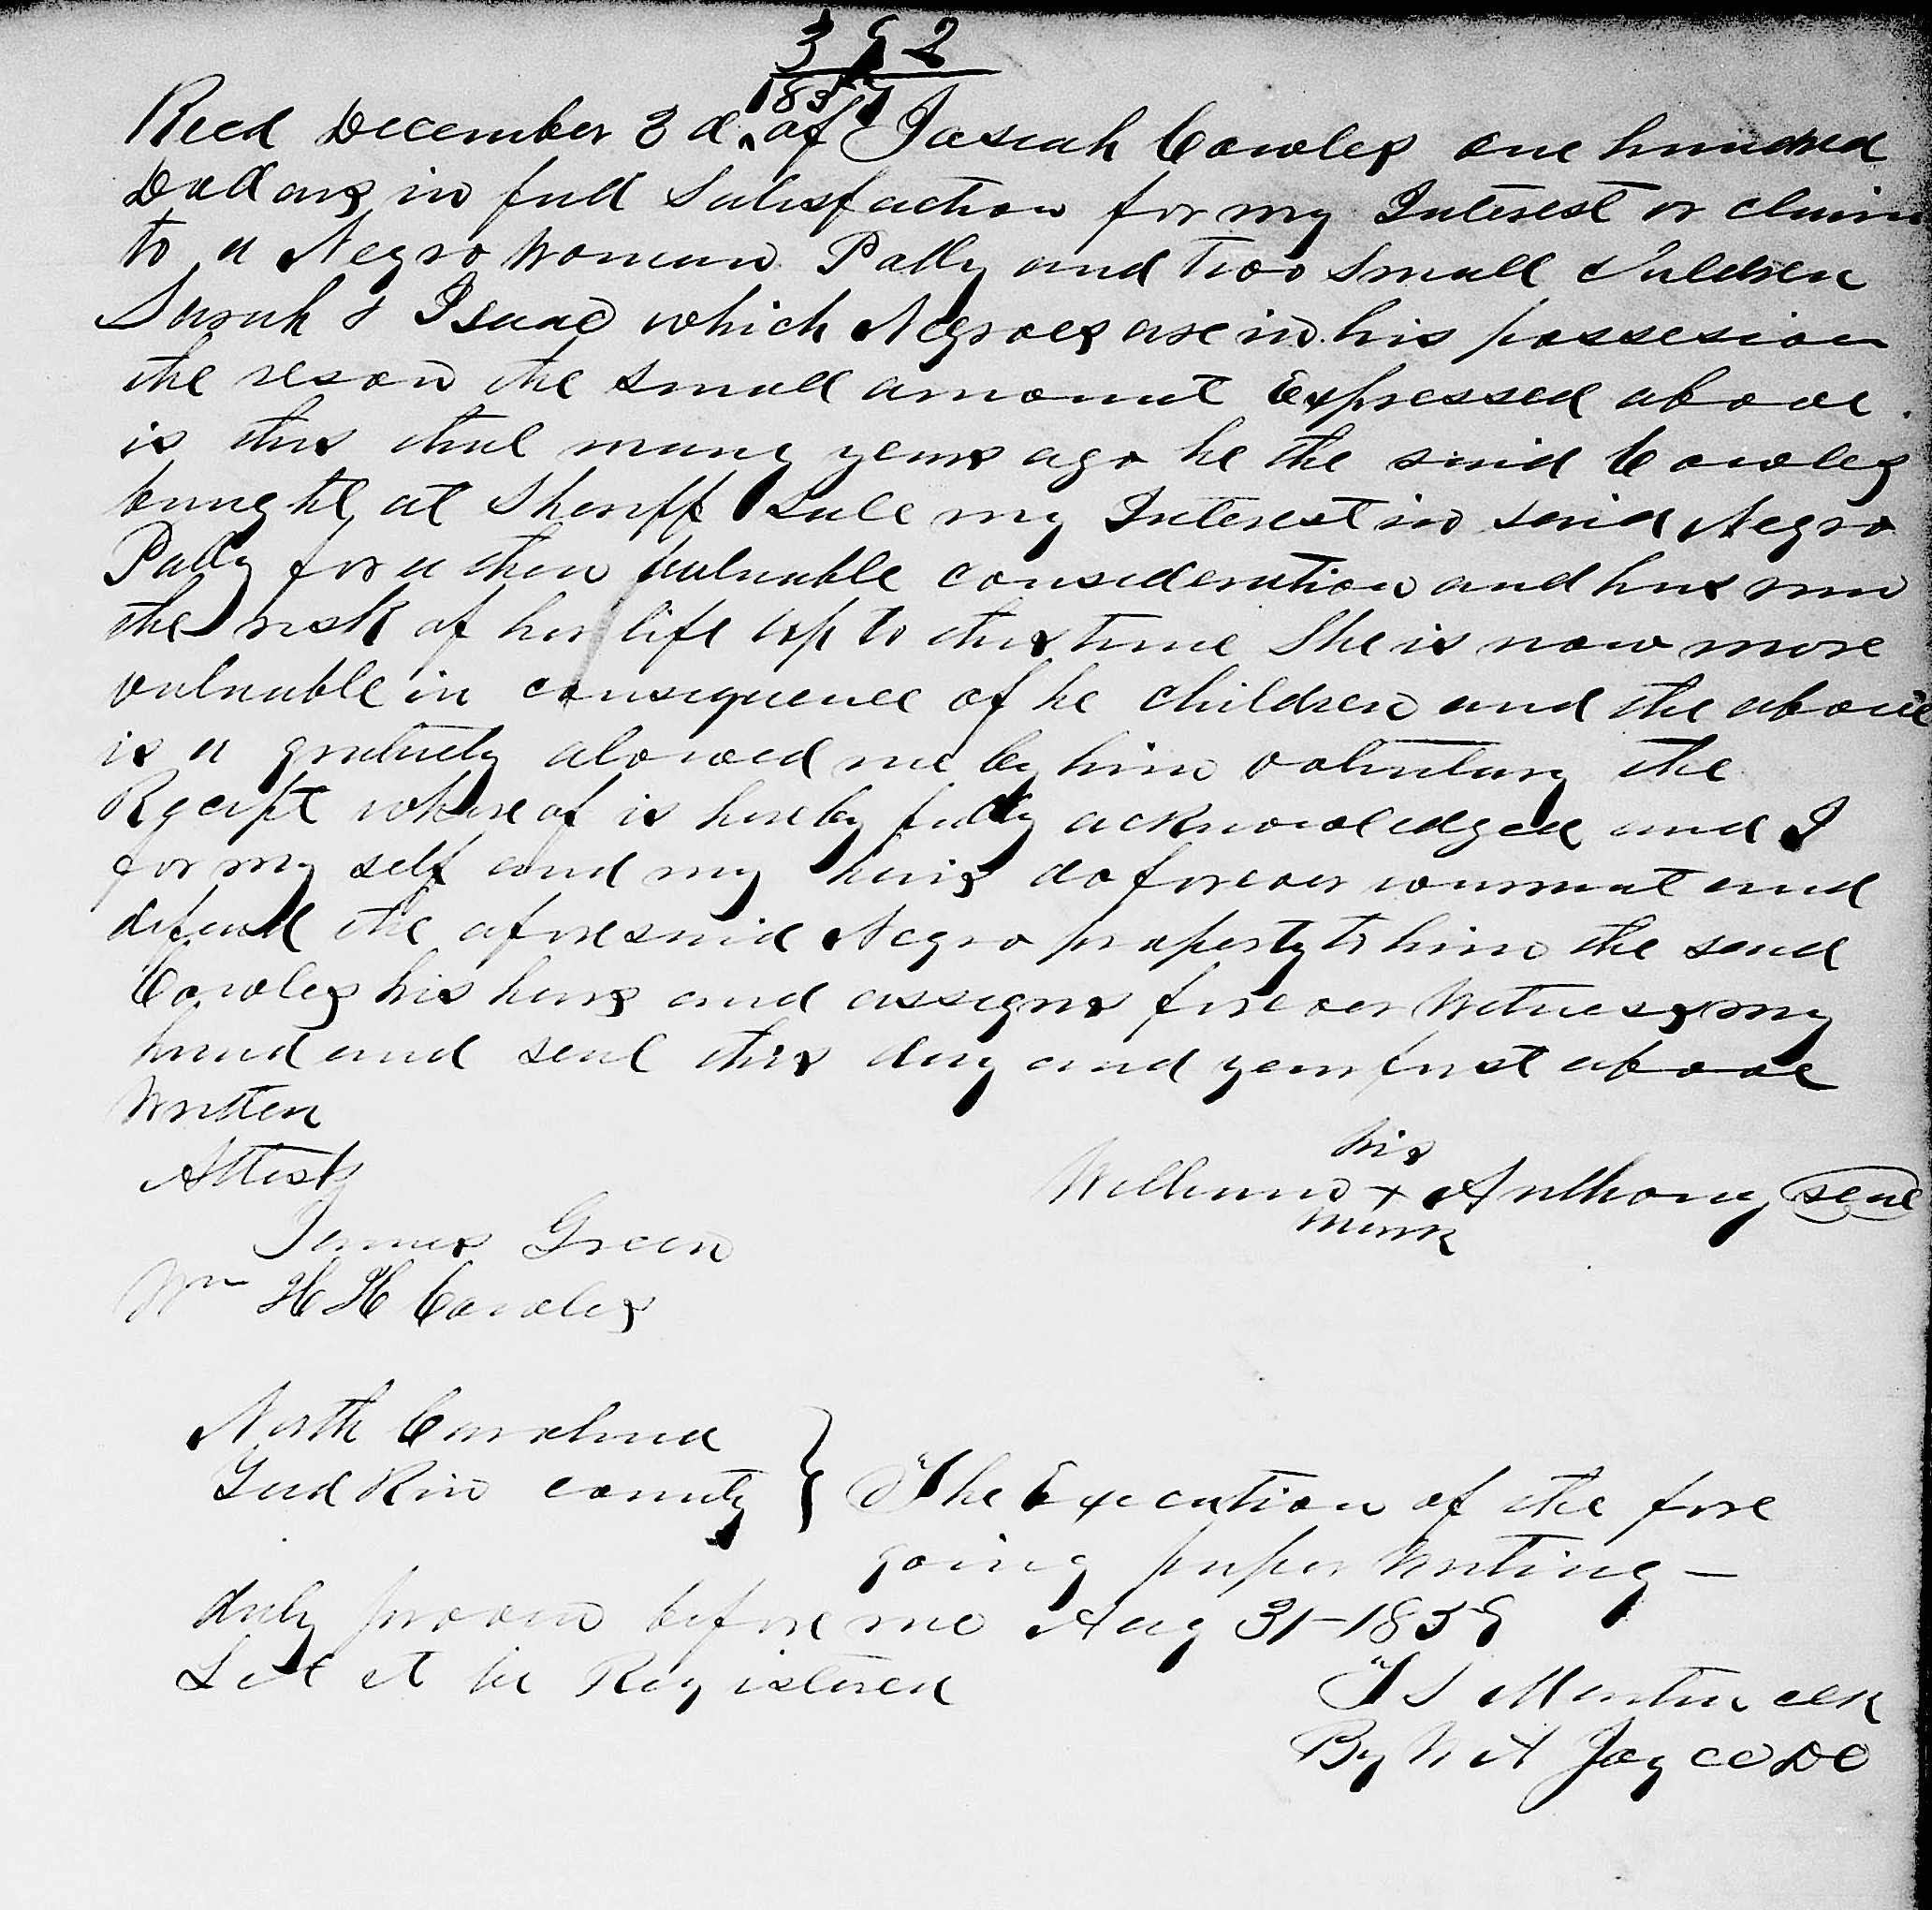 352
1857
Recd December 3d of Josiah Cowles one hundred
Dollars in full Satisfaction for my Interest or claim
to a Negro Woman Patty and two Small Children
Sarah & Isaac which Negroes are in his possesion
the reson the small amount Expressed above
is this that many years ago he the said Cowles
bought at Sheriff Sale my Interest in said Negro
Patty for a then valuable consideration and has run
the risk of her life up to this time She is now more
valuable in consequence of he children and the above
is a gratuety alowed me by him voluntary the
Receipt whereof is hereby fully acknowledged and I
for my self and my heirs do forever warrant and
defend the aforesaid Negro property to him the said
Cowles his heirs and assigns forever Witness my
hand and seal this day and year first above
Written
Attest
his
William x Anthony seal
mark
James Green
Wm H H Cowles
North Carolina
Yadkin county } The Execution of the fore
going paper writing —
duly proven before me Aug 31-1858
Let it be Registered
T S Martin Clk
By W A Joyce DC